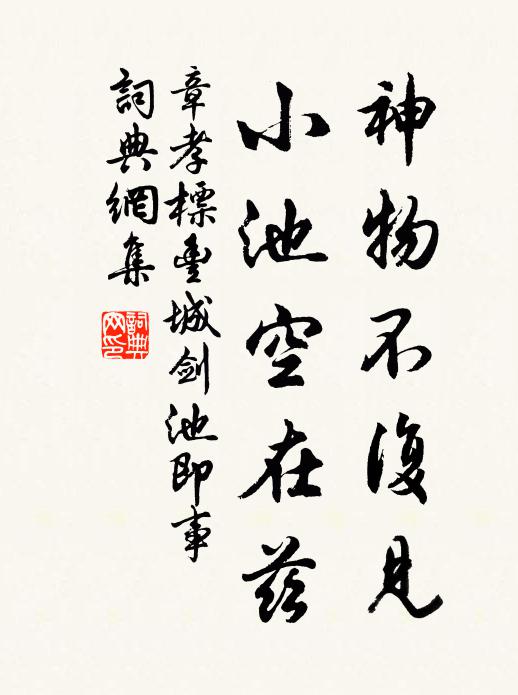 神物不復見
小池空在茲
章孝標豐城劍池即事
詞典網集
詞典
网印